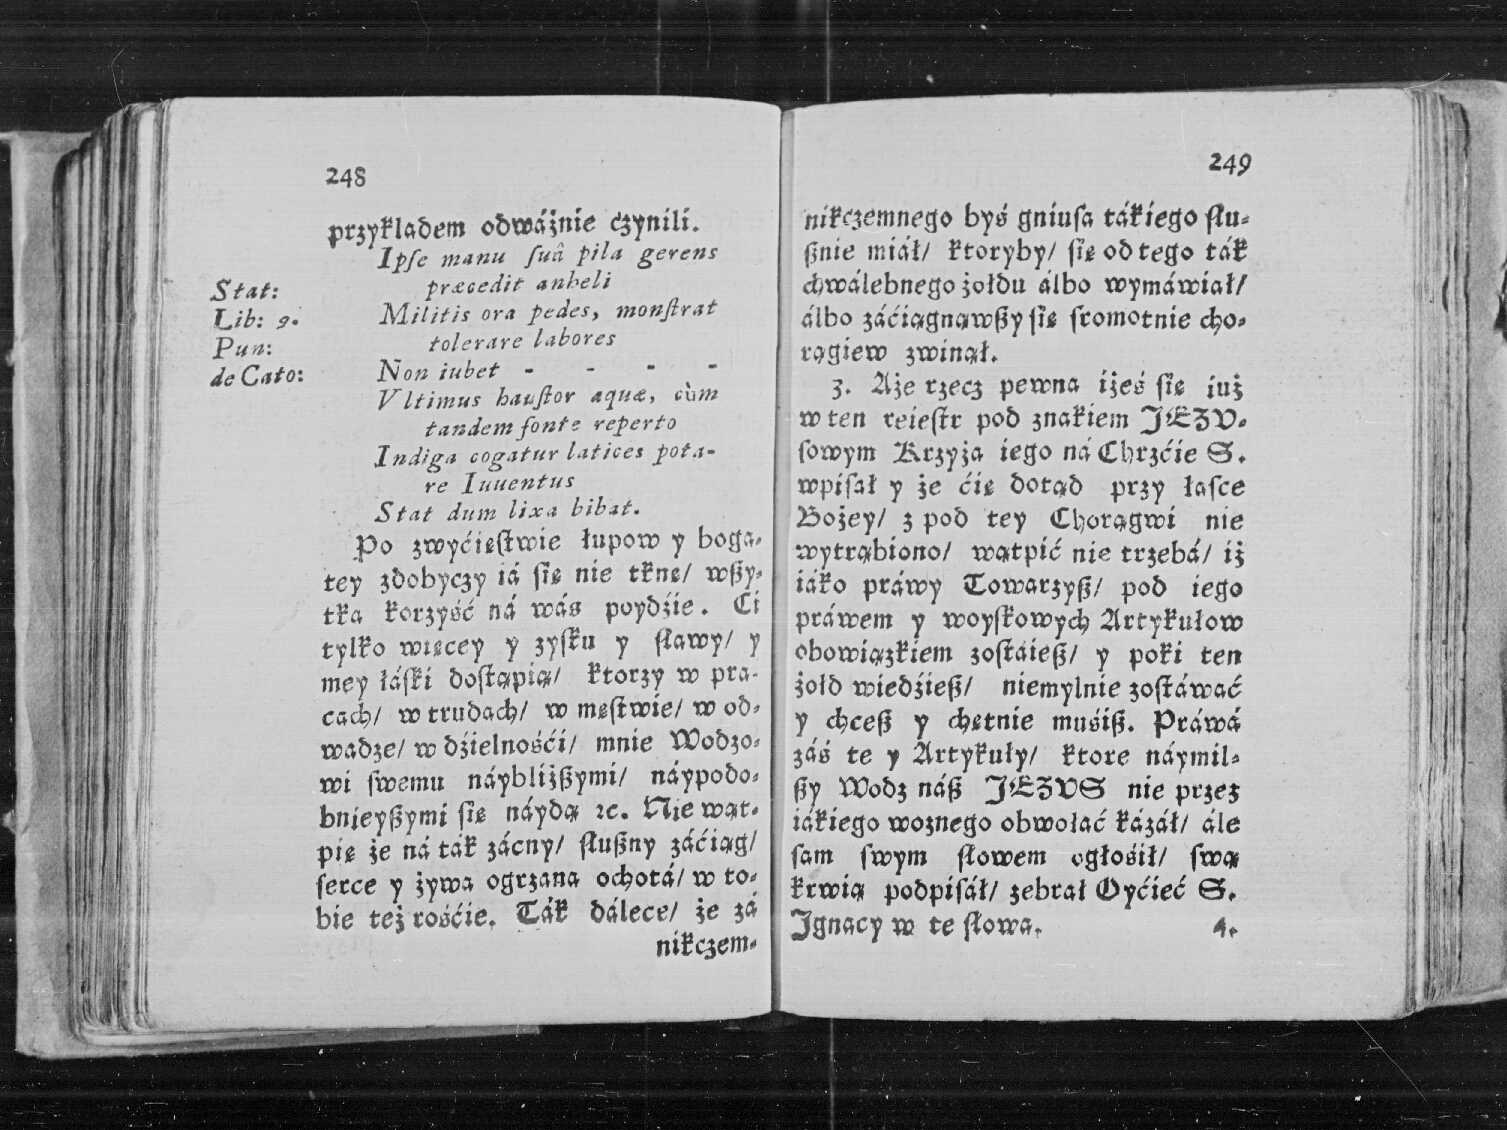 248
przykladem odwáżnie ćżynili.
Ipſe manu ſuâ pila gerens
præcedit anheli
Militis ora pedes, monſtrat
tolerare labores
Non iubet - - - -
Vltimus hauſtor aquæ, cùm
tandem fonte reperto
Indiga cogatur latices pota-
re Iuuentus
Stat dum lixa bibat.
Stat:
Lib: 9.
Pun:
de Cato:
Po zwyćięſtwie łupow y boga-
tey zdobyczy iá ſię nie tknę/ wßy-
tka korzyść ná wás poydźie. Ci
tylko więcey y zyſku y ſławy/ y
mey łáſki doſtąpią/ ktorzy w pra-
cach/ w trudach/ w męſtwie/ w od-
wadze/ w dźielnośći/ mnie Wodzo-
wi ſwemu náybliżßymi/ náypodo-
bnieyßymi ſię náydą ꝛc. Nie wąt-
pię że ná ták zácny/ ſłußny záćiąg/
ſerce y żywa ogrzana ochotá/ w to-
bie też rośćie. Ták dálece/ że zá
nikczem-
249
nikczemnego byś gniuſa tákiego ſłu-
ßnie miáł/ ktoryby/ ſię od tego ták
chwálebnego żołdu álbo wymáwiał/
álbo záćiągnąwßy ſię ſromotnie cho-
rągiew zwinął.
3. Aże rzecz pewna iżeś ſię iuż
w ten reieſtr pod znakiem JEZV-
ſowym Krzyża iego ná Chrzćie S.
wpiſał y że ćię dotąd przy łaſce
Bożey/ z pod tey Chorągwi nie
wytrąbiono/ wątpić nie trzebá/ iż
iáko práwy Towarzyß/ pod iego
práwem y woyſkowych Artykułow
obowiązkiem zoſtáieß/ y poki ten
żołd wiedźieß/ niemylnie zoſtáwáć
y chceß y chętnie muśiß. Práwá
záś te y Artykuły/ ktore náymil-
ßy Wodz náß JEZVS nie przez
iákiego woznego obwołać kázáł/ ále
ſam ſwym ſłowem ogłośił/ ſwą
krwią podpiſáł/ zebrał Oyćieć S.
Jgnacy w te ſłowa.
4.